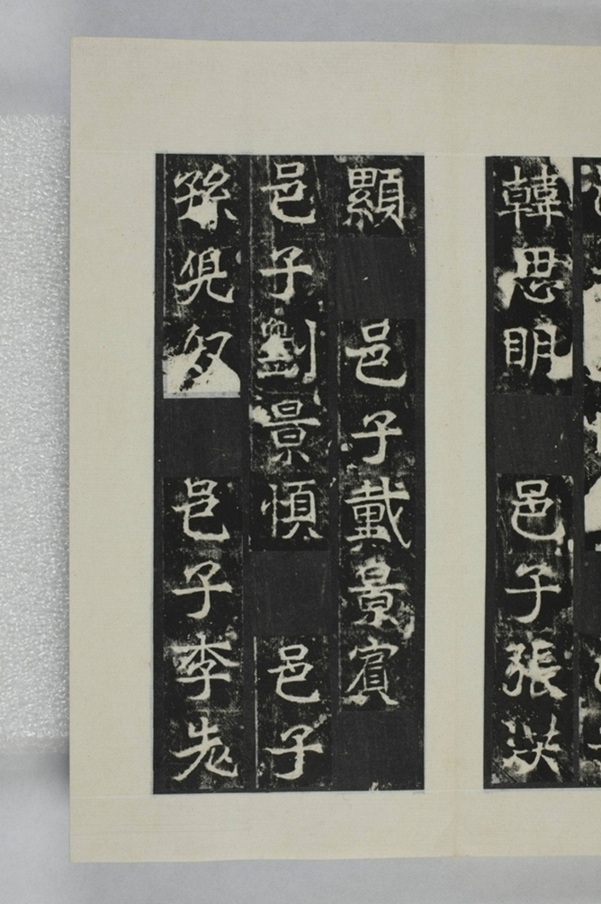 韓思明 邑子張洪
顯 邑子戴景賓
邑子劉景慎 邑子
孫兒奴 邑子李